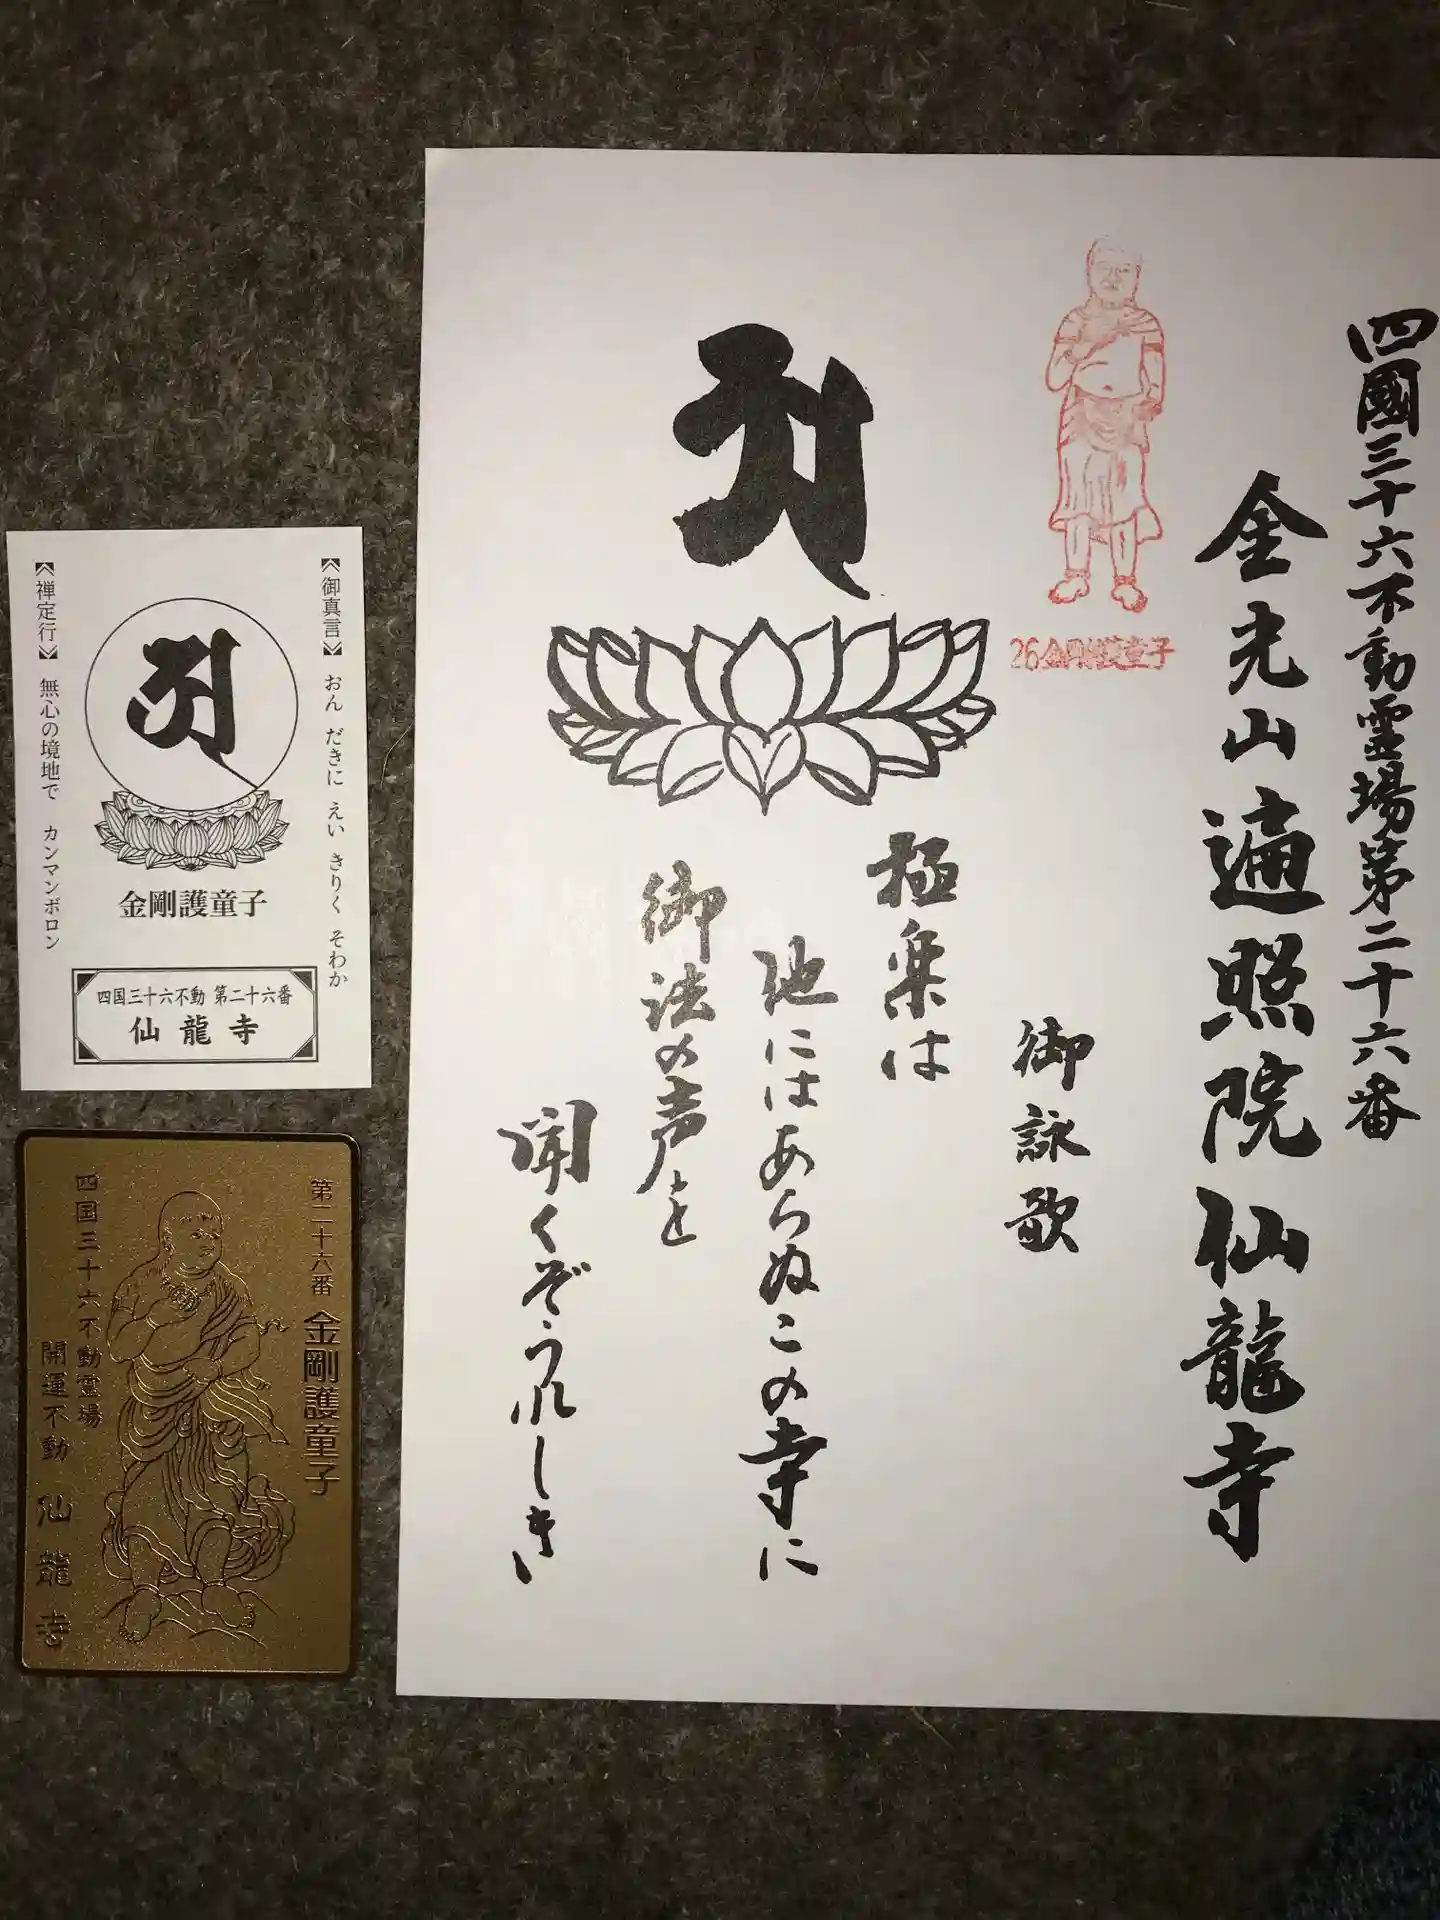 四國三十六不動霊場第二十六番
金光山遍照院仙龍寺
26金剛護童子
御詠歌
極楽は
池にはあらぬこの寺に
御法の声を
聞くぞうれしき
《御真言》 おん だきに えい きりく そわか
《禅定行》 無心の境地で カンマンボロン
金剛護童子
四国三十六不動 第二十六番
仙龍寺
第二十六番 金剛護童子
四国三十六不動霊場
開運不動 仙龍寺